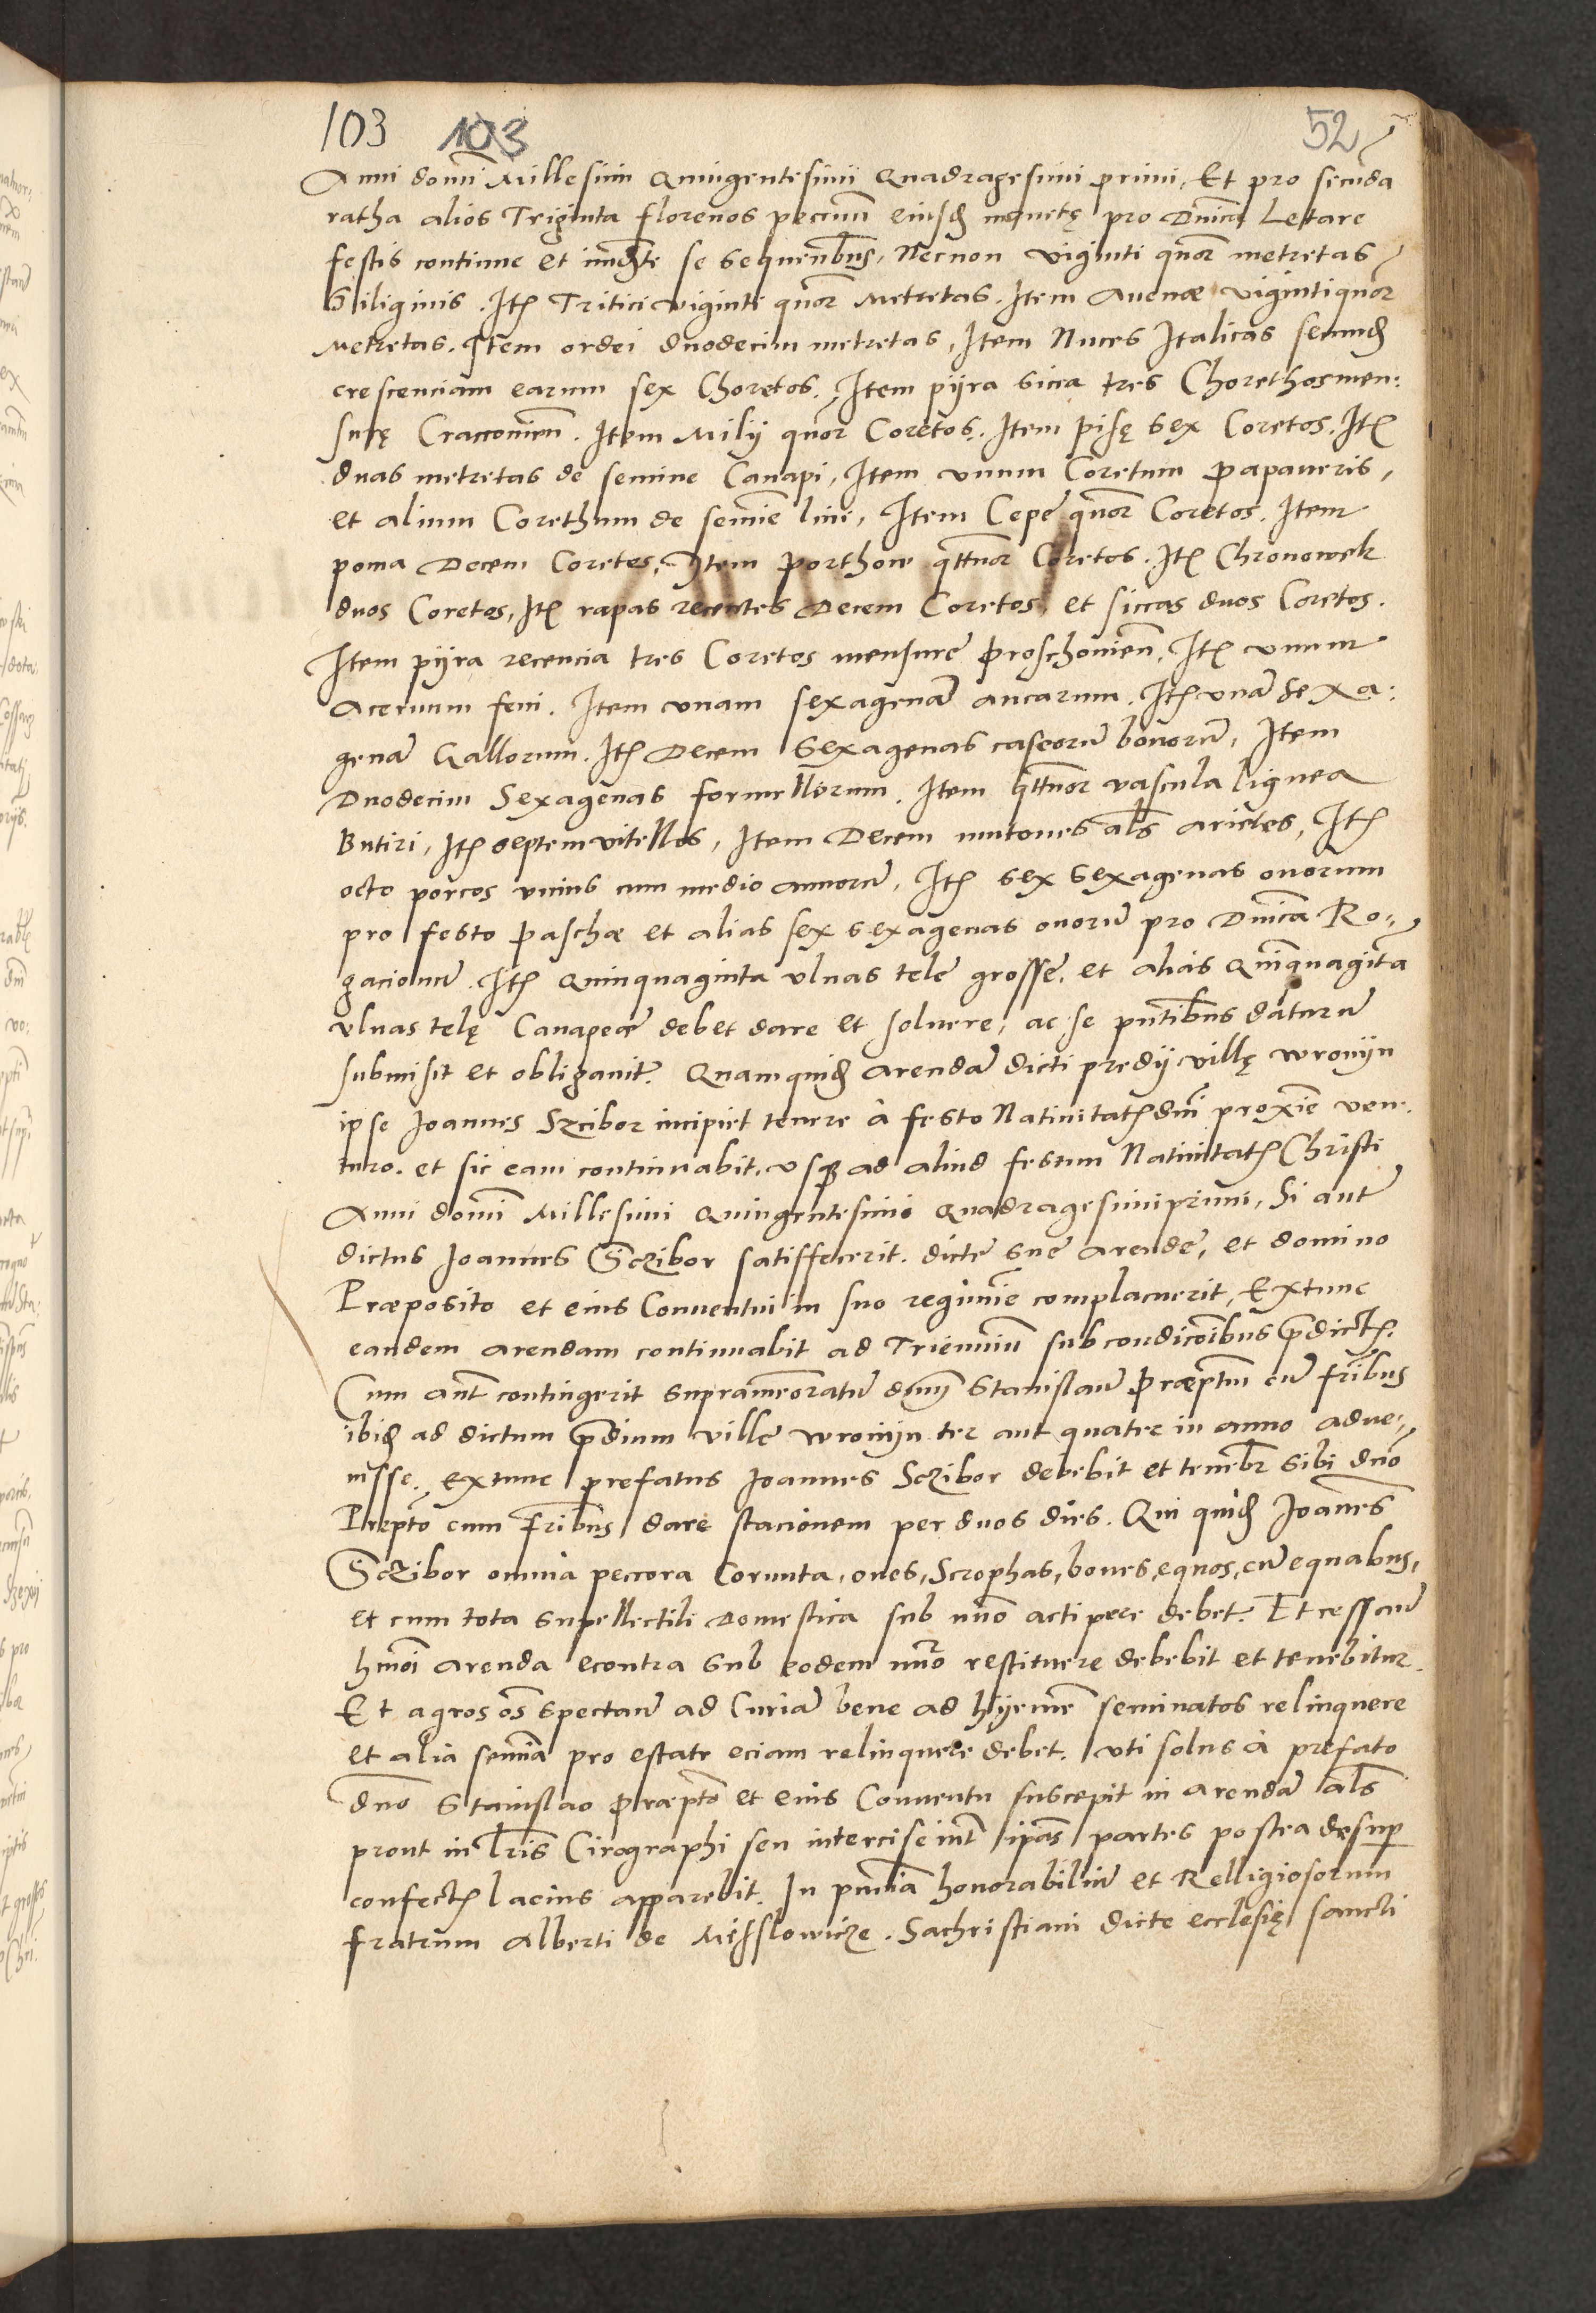 103 103 52
Anni domi Millesimi Quingentesimi Quadragesimi primi, Et pro secunda
ratha alios Triginta florenos peccunii eiusd monetę pro Dnica Letare
festis continue et immediate se sequentibus, Necnon viginti quor metretas
Siliginis. Itē Tritici viginti quor Metretas. Item Auenæ vigintiquor
Metretas. Item ordei duodecim metretas, Item Nuces Italicas secund
crescenciam earum sex Choretos. Item pijra sicca tres Chorethos men:
surę Cracouien. Item Milij quor Coretos. Item pisę sex Coretos. Itē
duas metretas de semine Canapi, Item vnum Coretum papaueris,
et alium Corethum de semie lini, Item Cepe quor Coretos. Item
poma Decem Coretos. Item porthow qttuor Coretos. Itē Chronowek
duos Coretos, Itē rapas recentes Decem Coretos, et siccas duos Coretos.
Item pijra recencia tres Coretos mensure proschouien, Itē vnum
Aceruum feni. Item vnam sexagenā aucarum. Itē vnā sexa:
genā Gallorum. Itē Decem Sexagenas caseorū bonorū, Item
Duodecim Sexagenas formellorum. Item qttuor vascula lignea
Butiri, Itē septem vitellos, Item Decem mutones als arietes, Itē
octo porcos vnius cum medio annorū, Itē sex sexagenas ouorum
pro festo paschæ et alias sex sexagenas ouorū pro Dnica Ro-
gacionū. Itē Quinquaginta vlnas tele grosse, et alias Quinquaginta
vlnas telę Canapeæ debet dare et soluere, ac se pntibus daturū
submisit et obligauit. Quamquid Arendā dicti predij villę wronijn
ipse Joannes Szcibor incipiet tenere à festo Natiuitatē dni proxie ven-
turo. et sic eam continuabit, vsq ad aliud festum Natiuitatē Christi
Anni domi Millesimi Quingentesimi Quadragesimi primi, Si aut
dictus Joannes Sczibor satisffecerit. dicte sue arende, et domino
Præposito et eius Conuentui in suo regimie complacuerit, Extunc
eandem arendam continuabit ad Trienniū sub condicoibus pdictē.
Cum aut contingerit suprameoratū dnm Stanislaū Præptum cū fribus
ibid ad dictum pdium ville wronijn ter aut quater in anno adue-
nisse, extunc prefatus Joannes Sczibor debebit et tenebr sibi dno
Prepto cum fribus dare stacionem per duos dies. Qui quid Joanes
Sczibor omnia peccora Cornuta, oues, Scrophas, boues, equos, cū equabus,
et cum tota supellectili Domestica sub nuo actipere debet. Et cessan
hmoi arenda econtra sub eodem nuro restituere debebit et tenebitur.
Et agros os spectan ad Curiā bene ad hijemē seminatos relinquere
et alia semia pro estate eciam relinquere debet. Vti solus à prefato
dno Stanislao præpto et eius Conuentu suscepit in arendā als
prout in lris Cirographi seu intercise int ipas partes postea desup
confectē lacius apparebit. In pncia honorabiliū et Relligiosorum
fratrum Alberti de Misslowicze. Sachristiani dicte ecclesię sancti